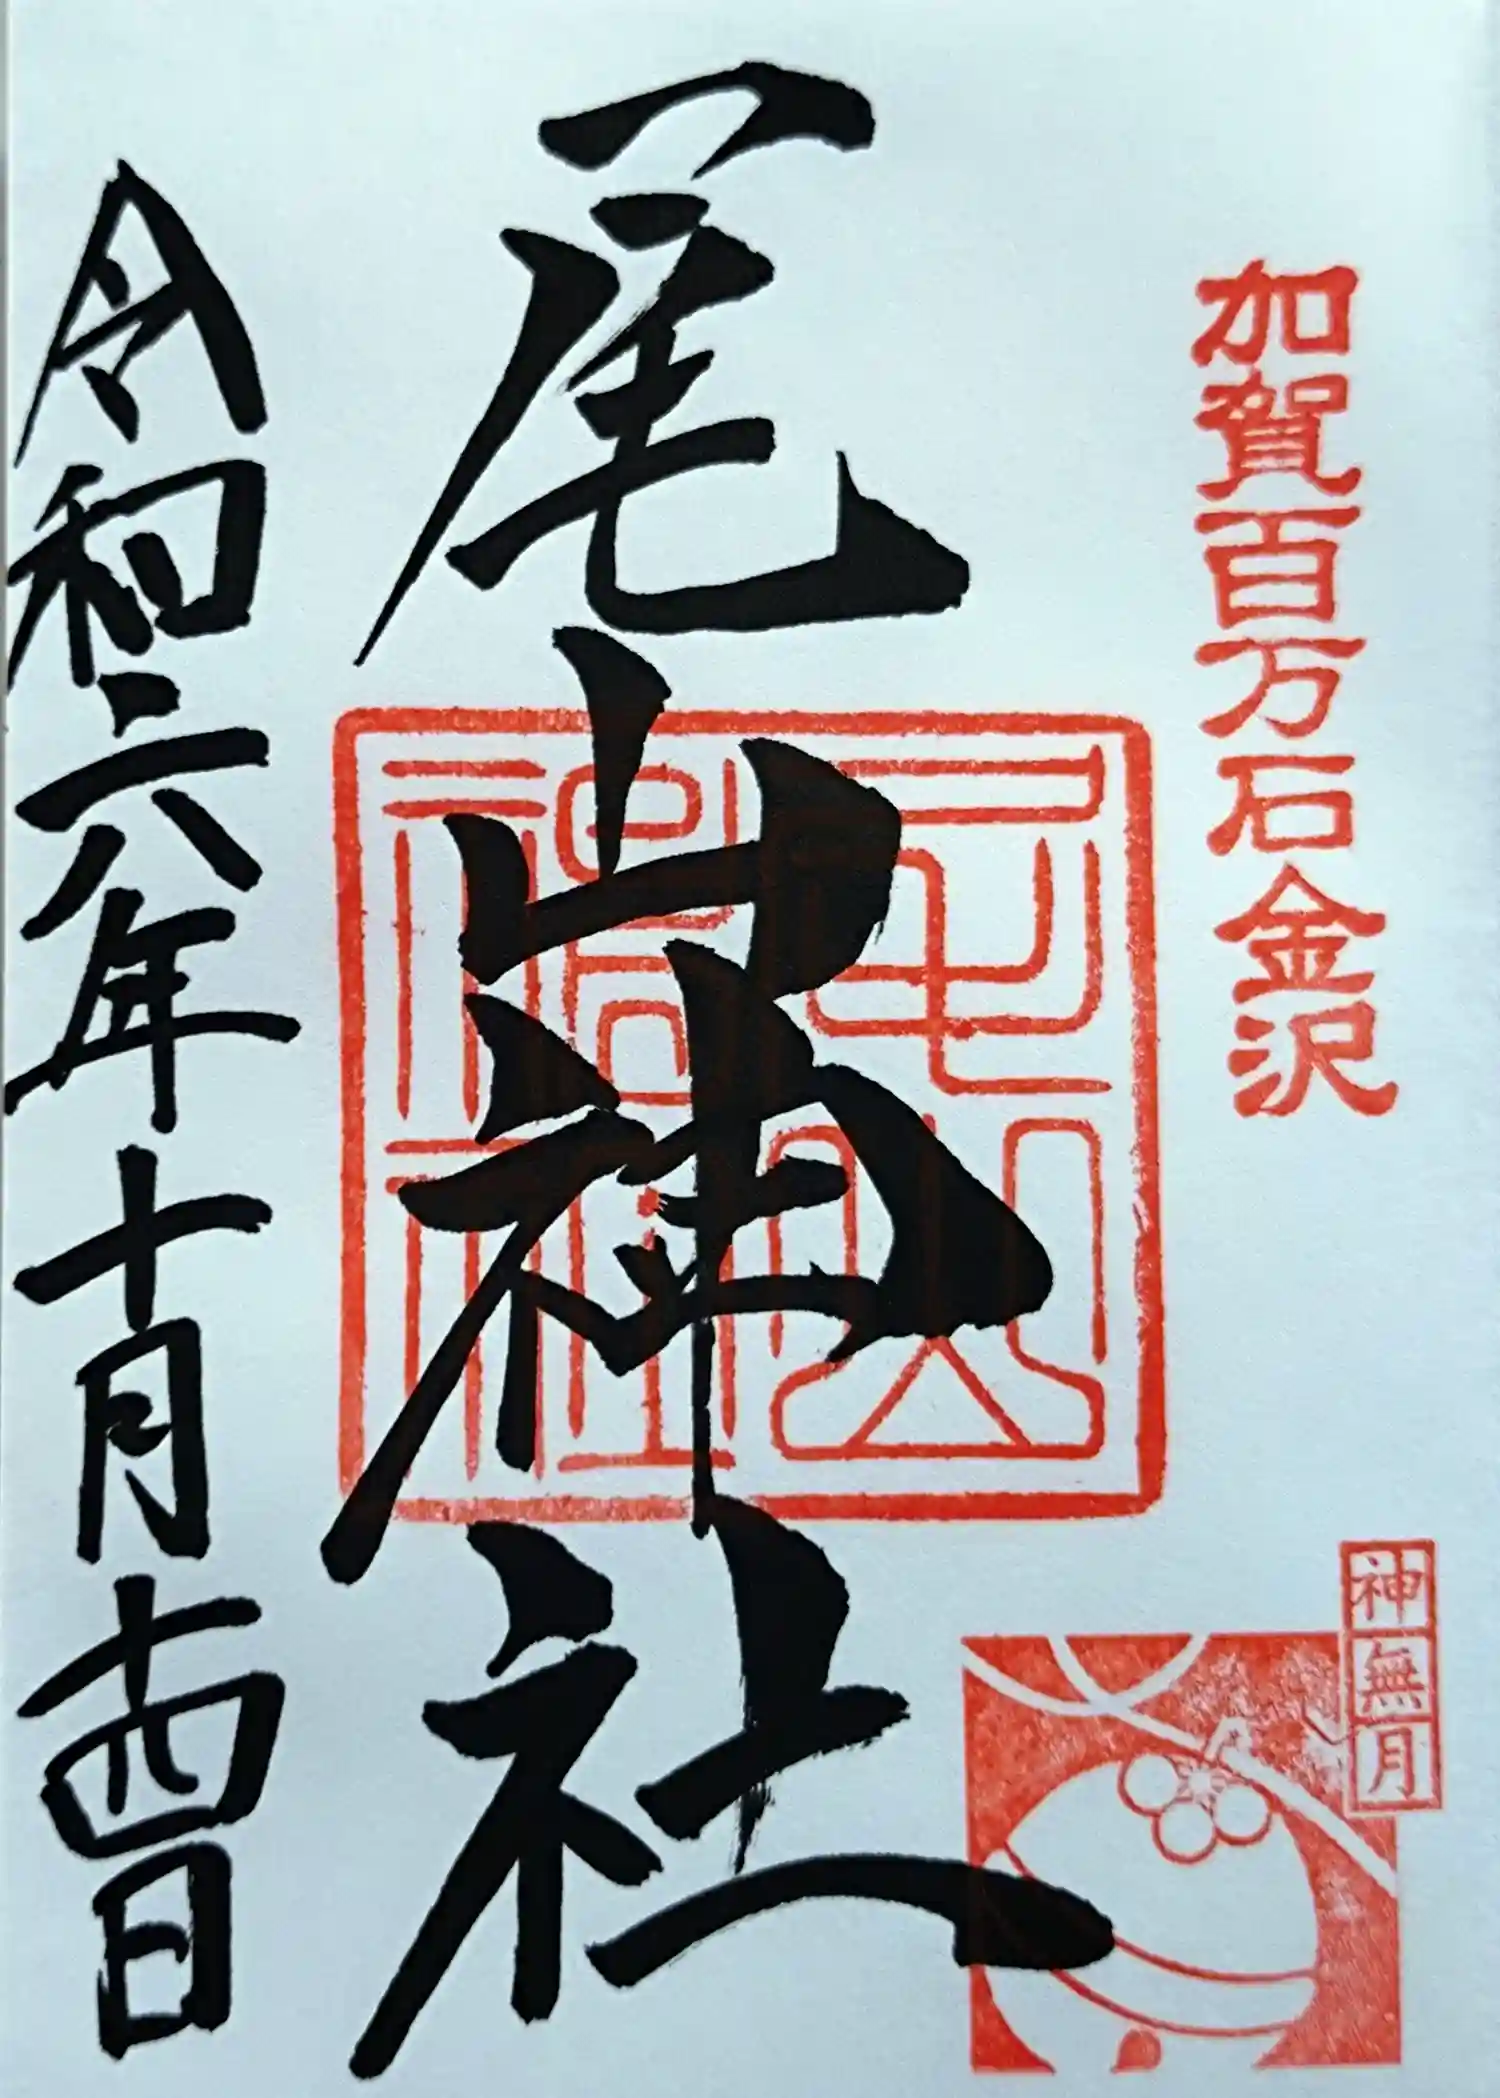 加賀百万石金沢
尾山神社
尾山神社
神無月
令和六年十月十四日